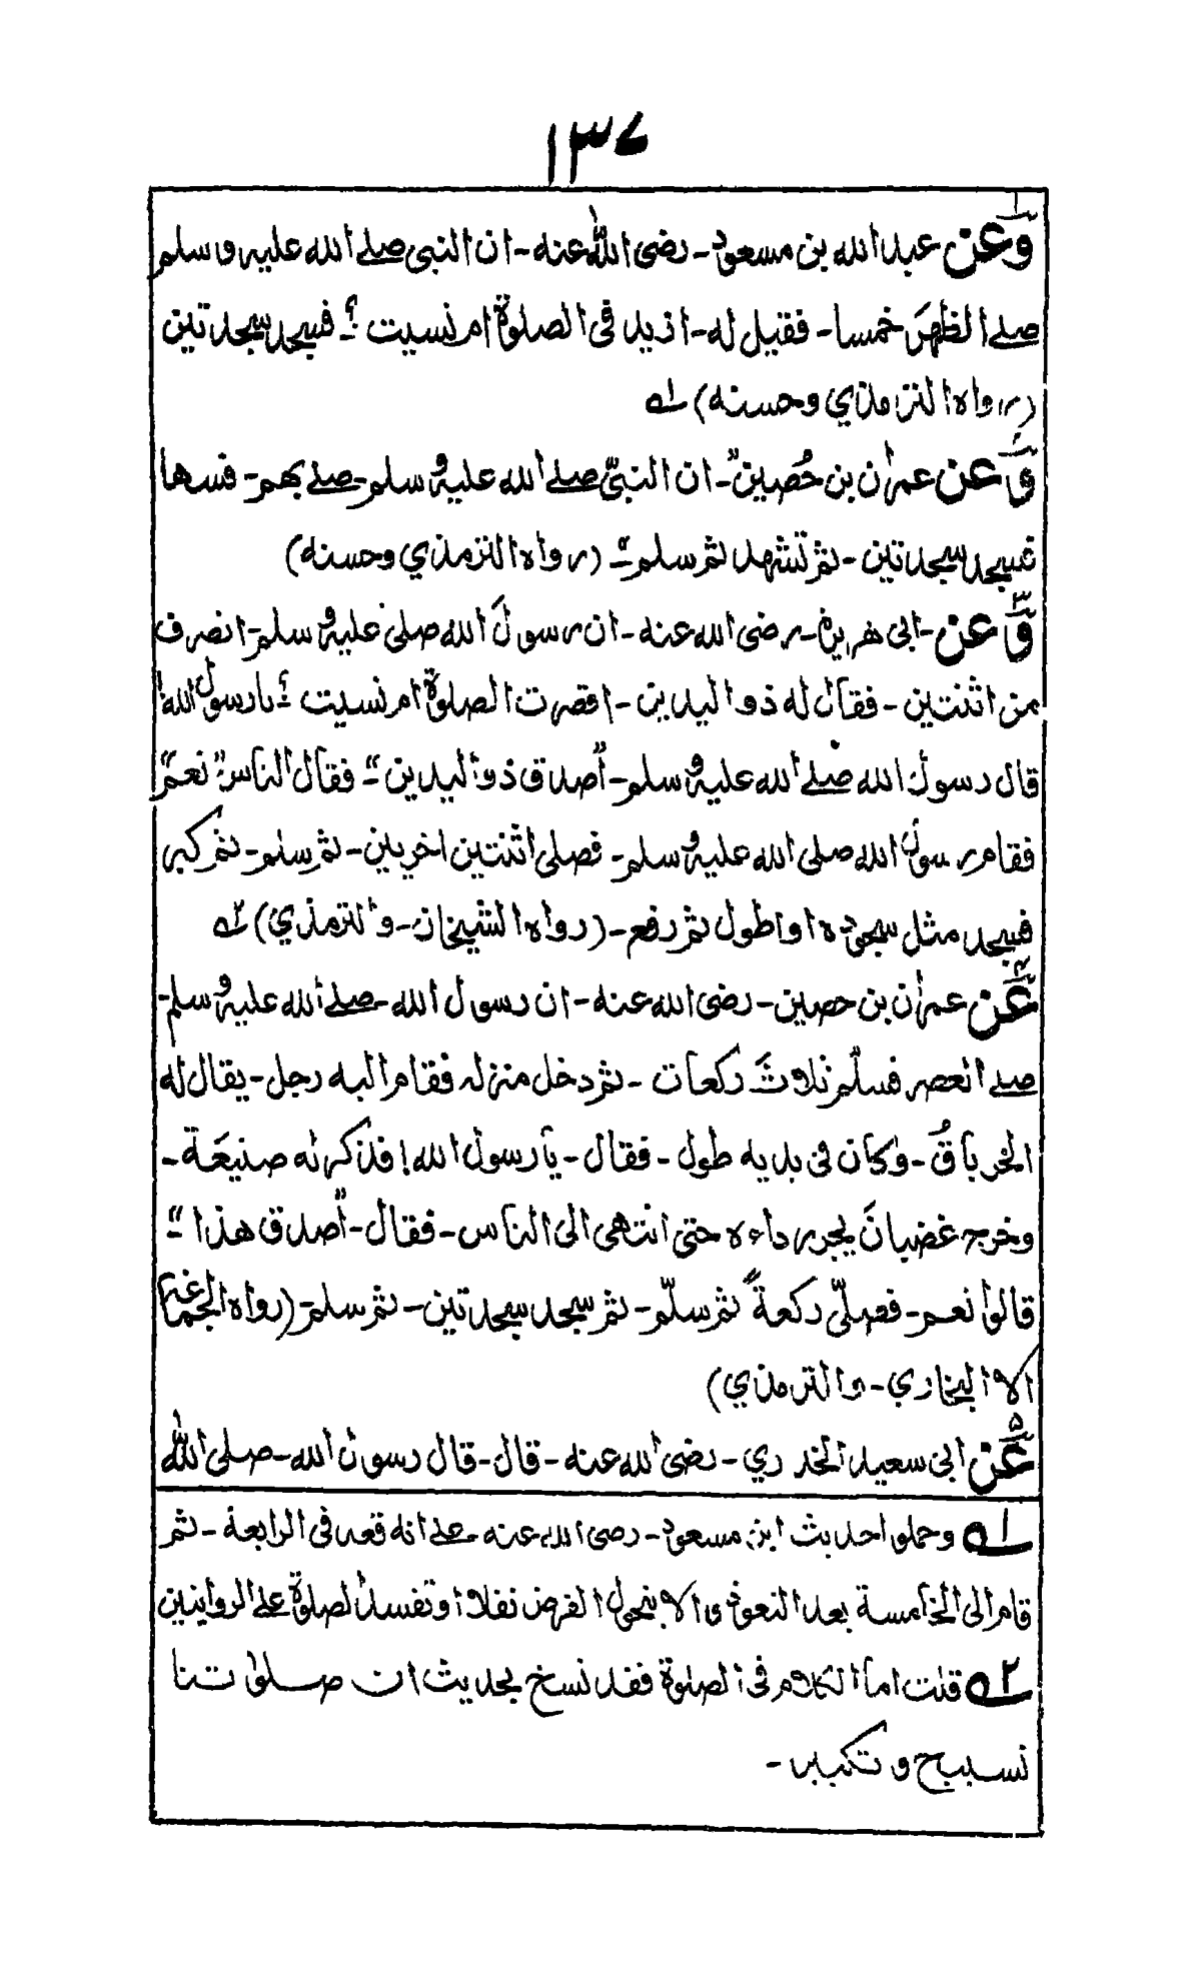 ١٣٤
١
وَعن عبد الله بن مسعود- رضى الله عنه- ان النبى صلے الله عليہ وسلم
صلے الظهرَ خمسا- فقيل له- ازيد فى الصلوٰة ام نسيت ؟- فسجد سجدتين
(رواه الترمذي وحسنه) لہ
٢
وَّ عن عمرٰن بن حُصينؓ- ان النبىّ صلے الله عليہ وسلم- صلے بهم- فسها
فسجد سجدتين- ثم تشهد ثم سلم- (رواه الترمذي وحسنه)
٣
وَّ عن- ابى هريرة- رضى الله عنه- ان رسولَ الله صلى عليہ وسلم- انصرف
من اثنتين- فقال له ذو اليدين- اقصرت الصلوٰة ام نسيت ؟- يا رسول الله!
قال رسول الله صلے الله عليہ وسلم- "أصدق ذو اليدين"- فقال الناس: "نعم"
فقام رسول الله صلى الله عليہ وسلم- فصلى اثنتين اخريين- ثم سلم- ثم كبر
فسجد مثل سجوده او اطول ثم رفع- (رواه الشيخان- والترمذي) ٢ہ
٤
عَن عمرٰن بن حصين- رضى الله عنه- ان رسول الله- صلے الله عليہ وسلم-
صلے العصر فسلّم ثلاثَ ركعات - ثم دخل منزله فقام اليه رجل- يقال له
الخرباقُ- وكان فى يديه طول- فقال- يا رسول الله! فذكر له صنيعَة-
وخرج غضبانَ يجرر داءه حتى انتهى الى الناس- فقال- "أصدق هذا"-
قالوا نعم- فصلّى ركعةً ثم سلّم- ثم سجد سجدتين- ثم سلم- (رواه الجماعة
الا البخاري- والترمذي)
۵
عَن ابى سعيد الخدري- رضى الله عنه- قال- قال رسول الله- صلى الله
١ہ وحملوا حديث ابن مسعود- رضى الله عنه- علے انه قعد فى الرابعة- ثم
قام الى الخامسة بعد القعود والا يتحول الفرض نفلا او تفسد الصلوٰة علے الروايتين
٢ہ قلت اما الكلام فى الصلوة فقد نسخ بحديث ان صلوا تنا
تسبيح و تكبير-